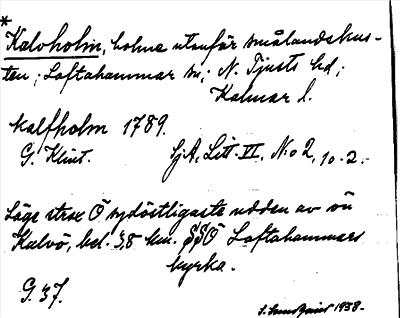 *
Kalvholm, holme utanför smålandskus-
ten; Loftahammar sn; N. Tjusts hd;
Kalmar l.
Kalfholm 1789.
G. Klint. SjA. Litt. VI. No 2, 10.2.-
Läge strax Ö sydöstligaste udden av ön
Kalvö, bel. 38 km. SSÖ Loftahammars
kyrka.
G. 37.
1938-